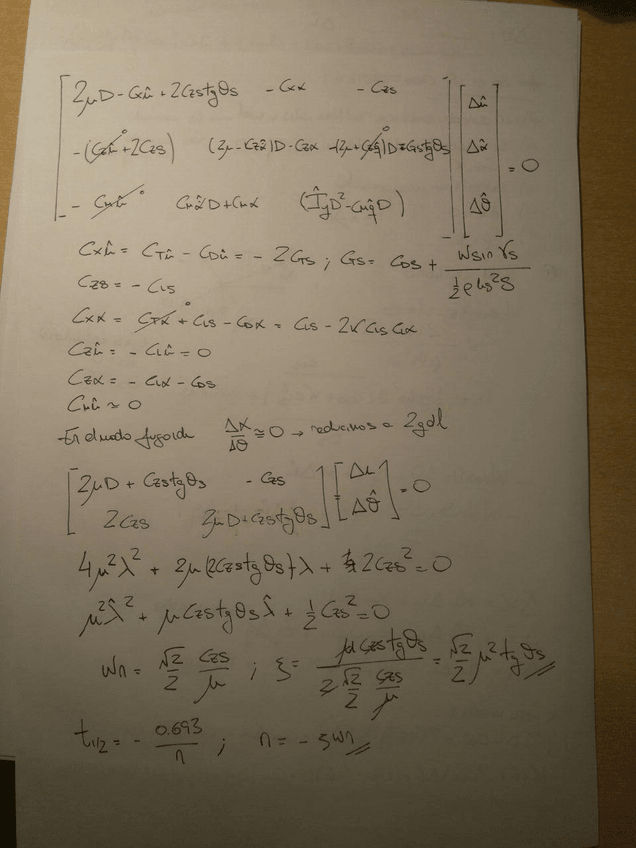 2μD - Cxû + 2Czs tgθs   - Cxα   - Czs   Δû
- (Czû + 2Czs)   (2μ - Czα̂)D - Czα   - (2μ + Czq̂)D + Czs tgθs   Δα̂   = 0
- Cmû   Cmα̂ D + Cmα   (ÎyD² - Cmq̂ D)   Δθ̂
Cxû = CTû - CDû = - 2CTs ; CTs = CDs + W sin γs / ½ρ Us² S
Czs = - CLs
Cxα = CTα + CLs - CDα = CLs - 2K CLs CLα
Czû = - CLû = 0
Czα = - CLα - CDs
Cmû ≃ 0
En el modo fugoide Δα/Δθ ≅ 0 → reducimos a 2gdl
2μD + Czs tgθs   - Czs   Δu
2Czs   2μD + Czs tgθs   Δθ̂   = 0
4μ²λ² + 2μ(2Czs tgθs)λ + 2Czs² = 0
μ²λ̂² + μ Czs tgθs λ̂ + ½ Czs² = 0
ωn = √2/2 Czs/μ ; ξ = μ Czs tgθs / 2 √2/2 Czs/μ = √2/2 μ² tgθs
t1/2 = - 0.693/n ; n = - ξωn